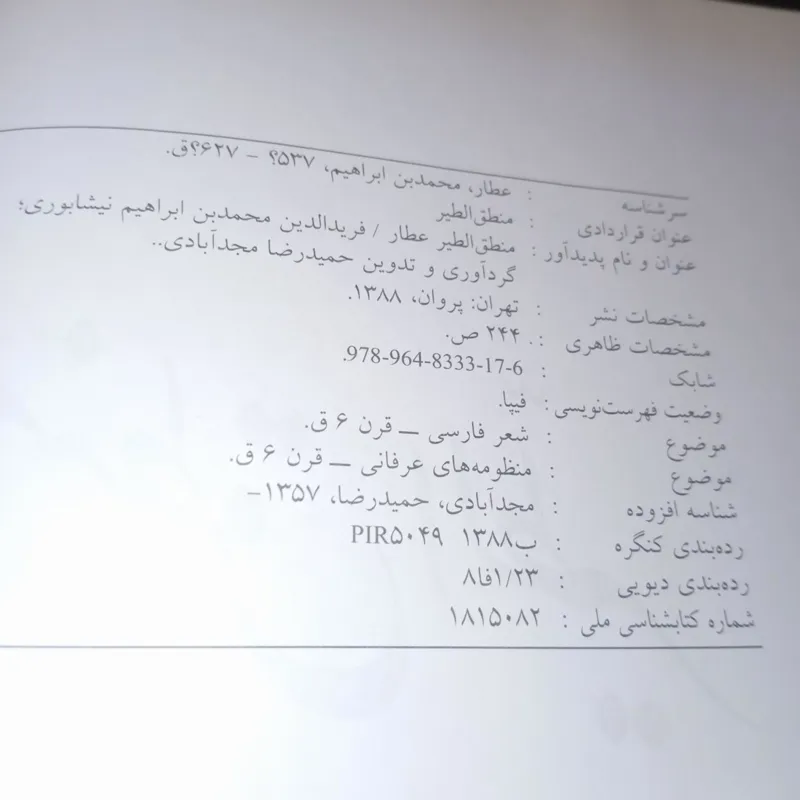 سرشناسه : عطار، محمدبن ابراهیم، ۵۳۷؟ - ۶۲۷؟ق.
عنوان قراردادی : منطق‌الطیر
عنوان و نام پدیدآور : منطق‌الطیر عطار / فریدالدین محمدبن ابراهیم نیشابوری؛
گردآوری و تدوین حمیدرضا مجدآبادی..
مشخصات نشر : تهران: پروان، ۱۳۸۸.
مشخصات ظاهری : ۲۴۴ ص.
شابک : 978-964-8333-17-6.
وضعیت فهرست‌نویسی : فیپا.
موضوع : شعر فارسی — قرن ۶ ق.
موضوع : منظومه‌های عرفانی — قرن ۶ ق.
شناسه افزوده : مجدآبادی، حمیدرضا، ۱۳۵۷-
رده‌بندی کنگره : PIR۵۰۴۹ ب۱۳۸۸
رده‌بندی دیویی : ۸فا۱/۲۳
شماره کتابشناسی ملی : ۱۸۱۵۰۸۲